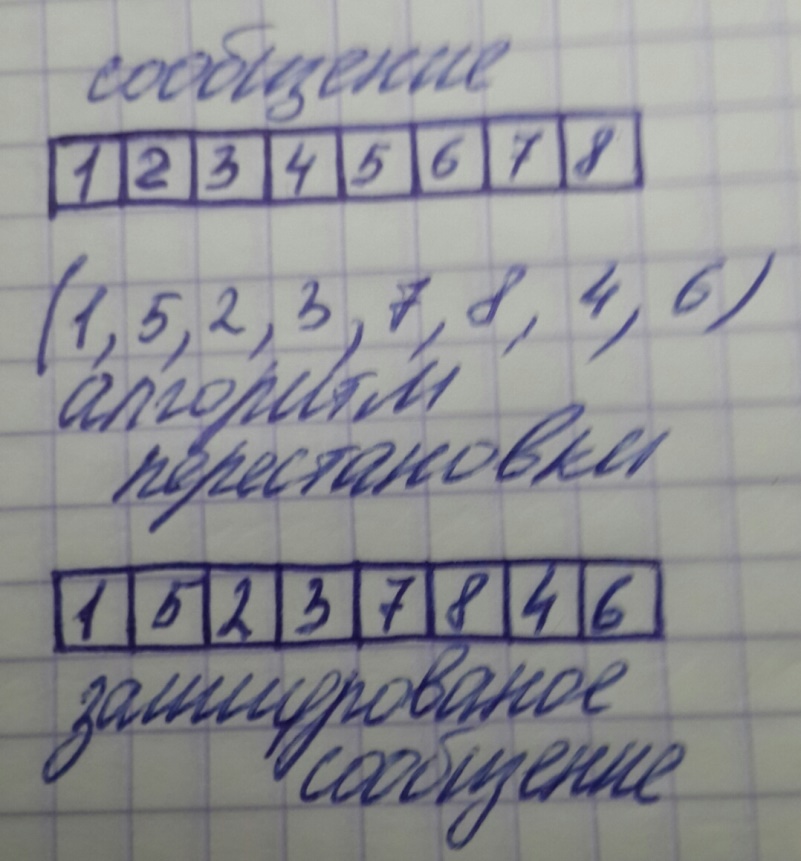 сообщение
1 2 3 4 5 6 7 8
(1, 5, 2, 3, 7, 8, 4, 6)
алгоритм
перестановки
1 5 2 3 7 8 4 6
зашифрованое
сообщение